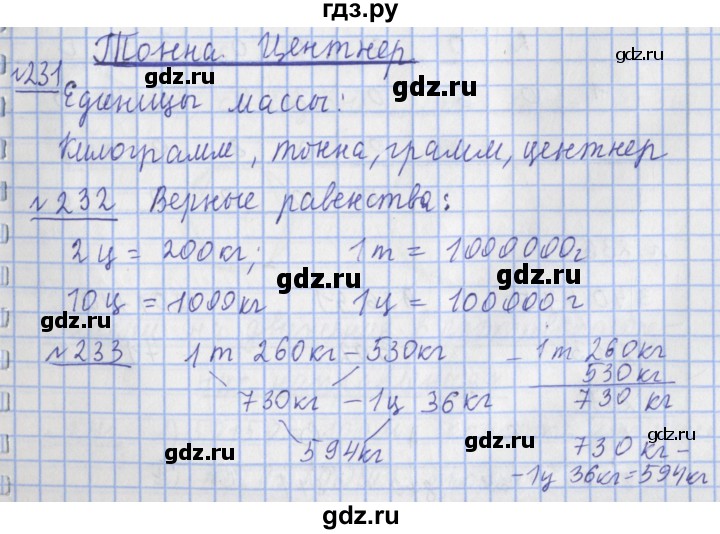 гдз.ру
Тонна. Центнер
№231
gdz.ru
Единицы массы:
Килограмм, тонна, грамм, центнер
gdz.ru
№232 Верные равенства:
2ц = 200кг; 1т = 1000000г
gdz.ru gdz.ru
10ц = 1000кг 1ц = 100000г
gdz.ru
№233 1т 260кг – 530кг – 1т 260кг
530кг
730кг – 1ц 36кг 730 кг
gdz.ru
594кг 730кг –
gdz.ru gdz.ru
– 1ц 36кг = 594кг
gdz.ru
gdz.ru